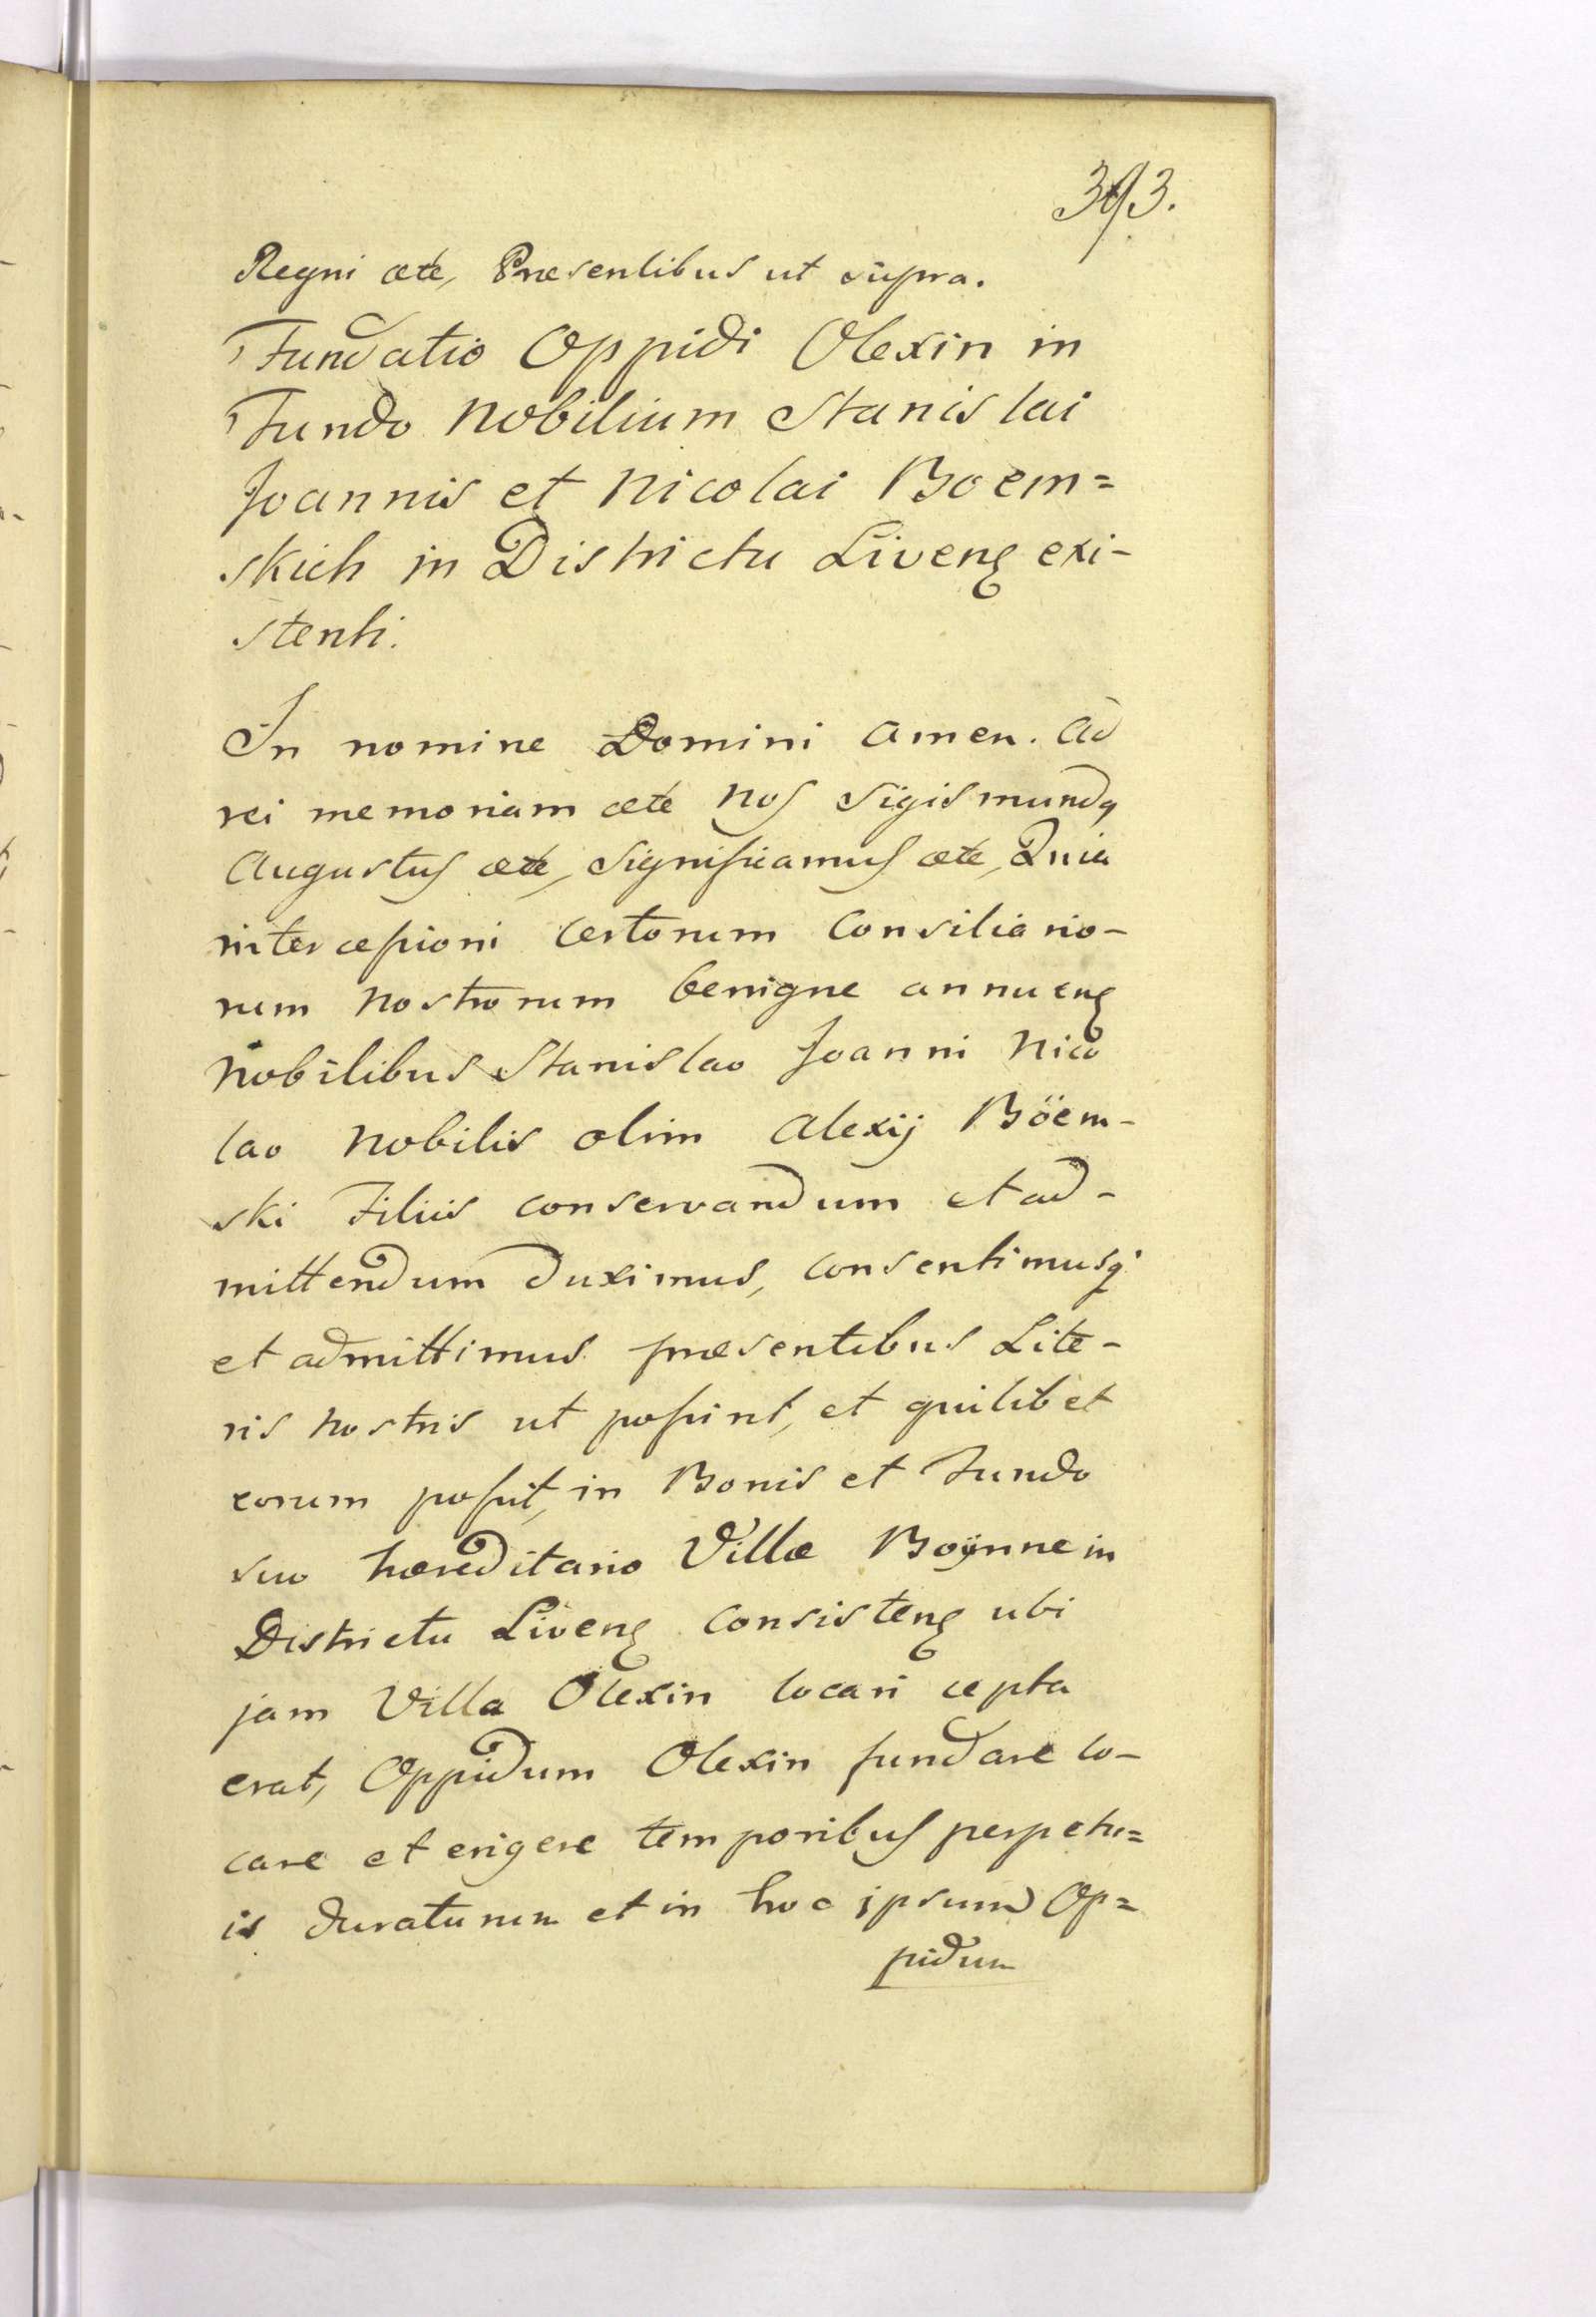 393.
Regni ćete, Præsentibus ut supra.
Fundatio Oppidi Olexin in
Fundo Nobilium Stanislai
Joannis et Nicolai Boem=
skich in Districtu Livenȝ exi-
stenti.
In nomine Domini Amen. Ad
rei memoriam ćete Nos Sigismundꝯ
Augustus ćete, significamus ćete, Quia
intercessioni certorum Consiliario-
rum Nostrorum benigne annuenȝ
Nobilibus Stanislao Joanni Nico
lao Nobilis olim Alexij Böem-
ski Filiis conservandum et ad-
mittendum duximus, consentimusq
et admittimus præsentibus Lite-
ris Nostris ut possint, et quilibet
eorum possit, in Bonis et Fundo
suo hæreditario Villæ Boÿnne in
Districtu Livenȝ consistenȝ ubi
jam Villa Olexin locari cepta
erat, Oppidum Olexin fundare lo-
care et erigere temporibus perpetu=
is duraturum et in hoc ipsum Op=
pidum